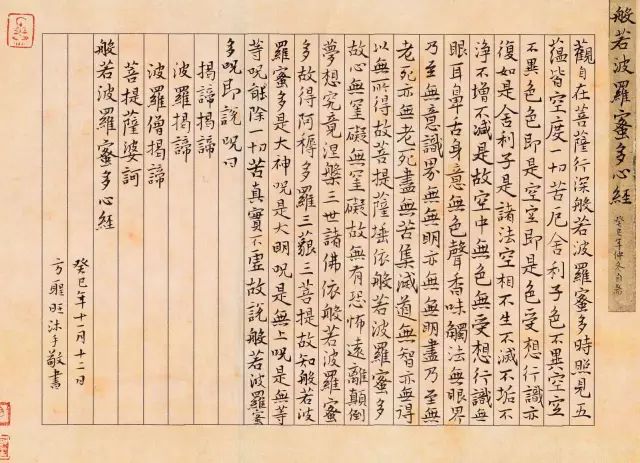 般若波羅蜜多心經 癸巳年仲冬自
觀自在菩薩行深般若波羅蜜多時照見五
蘊皆空度一切苦厄舍利子色不異空空
不異色色即是空空即是色受想行識亦
復如是舍利子是諸法空相不生不滅不垢不
淨不增不減是故空中無色無受想行識無
眼耳鼻舌身意無色聲香味觸法無眼界
乃至無意識界無無明亦無無明盡乃至無
老死亦無老死盡無苦集滅道無智亦無得
以無所得故菩提薩埵依般若波羅蜜多
故心無罣礙無罣礙故無有恐怖遠離顛倒
夢想究竟涅槃三世諸佛依般若波羅蜜
多故得阿耨多羅三藐三菩提故知般若波
羅蜜多是大神呪是大明呪是無上呪是無等
等呪能除一切苦真實不虛故說般若波羅蜜
多呪即說呪曰
揭諦揭諦
波羅揭諦
波羅僧揭諦
菩提薩婆訶
般若波羅蜜多心經
癸巳年十一月十二日
方聖旺沐手敬書